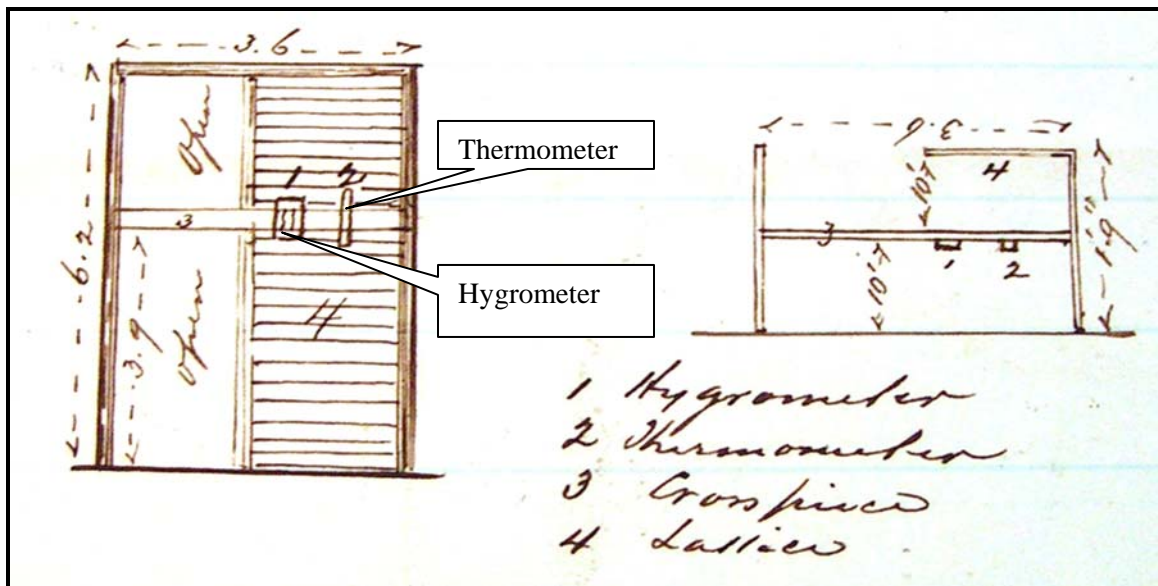 3.6
Open
1 2
3
Open
4
6.2
3.9
Thermometer
Hygrometer
3.6
4
10"
3
1 2
10"
1.9"
1 Hygrometer
2 Thermometer
3 Crosspiece
4 Lattice